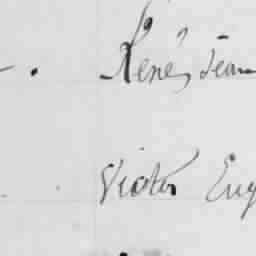 René, Jean
Victor Eug